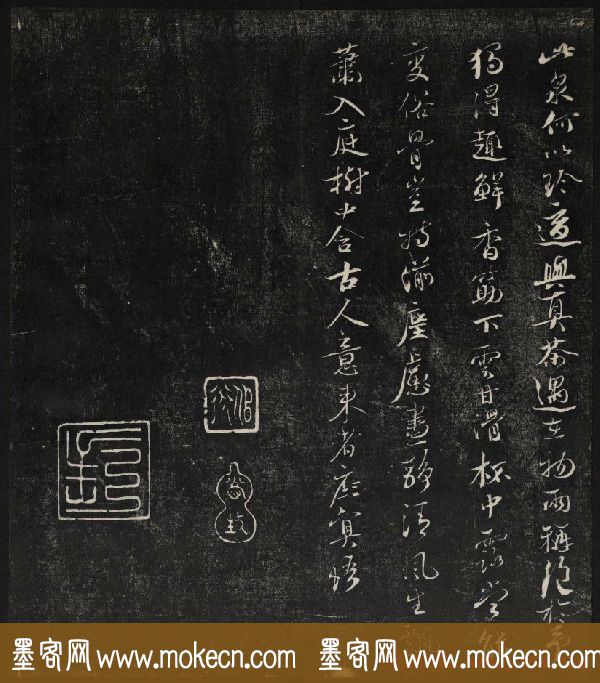 此泉何以珎適與真茶遇在物兩稱絶於予
獨得趣鮮香筯下雲甘滑杯中露當能
變俗骨豈特湔塵慮晝静清風生飄
蕭入庭樹中含古人意来者庶冥悟
墨客网 www.mokecn.com 墨客网 www.mokecn.com